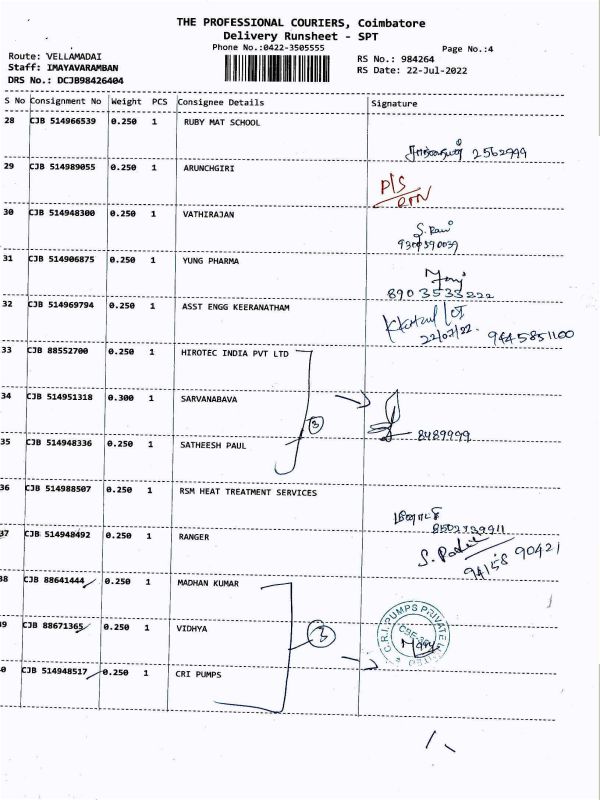 THE PROFESSIONAL COURIERS, Coimbatore
Delivery Runsheet - SPT
Phone No.:0422-3505555
Page No.:4
Route: VELLAMADAI
RS No.: 984264
Staff: IMAYAVARAMBAN
RS Date: 22-Jul-2022
DRS No.: DCJB98426404
S No Consignment No Weight PCS Consignee Details Signature
28 CJB 514966539 0.250 1 RUBY MAT SCHOOL
2562999
29 CJB 514989055 0.250 1 ARUNCHGIRI
P/S
30 CJB 514948300 0.250 1 VATHIRAJAN
S. Ravi
31 CJB 514906875 0.250 1 YUNG PHARMA
8903533222
32 CJB 514969794 0.250 1 ASST ENGG KEERANATHAM
22/07/22. 9445851100
33 CJB 88552700 0.250 1 HIROTEC INDIA PVT LTD
34 CJB 514951318 0.300 1 SARVANABAVA
3
8489999
35 CJB 514948336 0.250 1 SATHEESH PAUL
36 CJB 514988507 0.250 1 RSM HEAT TREATMENT SERVICES
37 CJB 514948492 0.250 1 RANGER
94158 90421
38 CJB 88641444 0.250 1 MADHAN KUMAR
39 CJB 88671365 0.250 1 VIDHYA
3
C.R.I. PUMPS PRIVATE LIMITED
40 CJB 514948517 0.250 1 CRI PUMPS